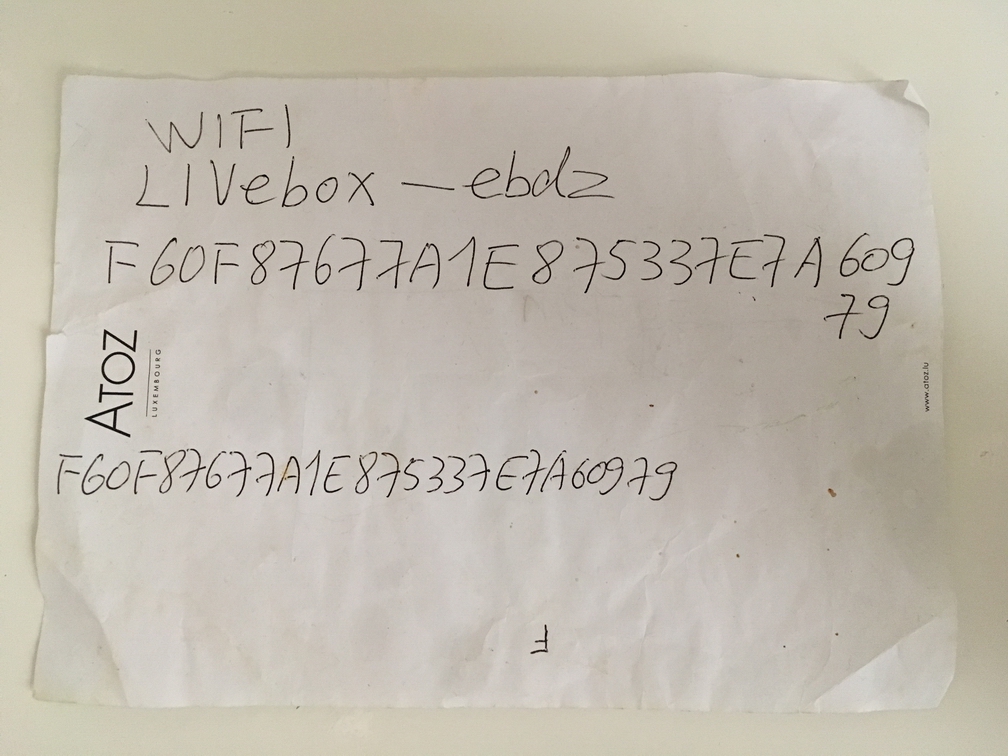 WIFI
LIVebox — ebdz
F60F87677A1E875337E7A609
79
ATOZ
LUXEMBOURG
www.atoz.lu
F60F87677A1E875337E7A60979
F